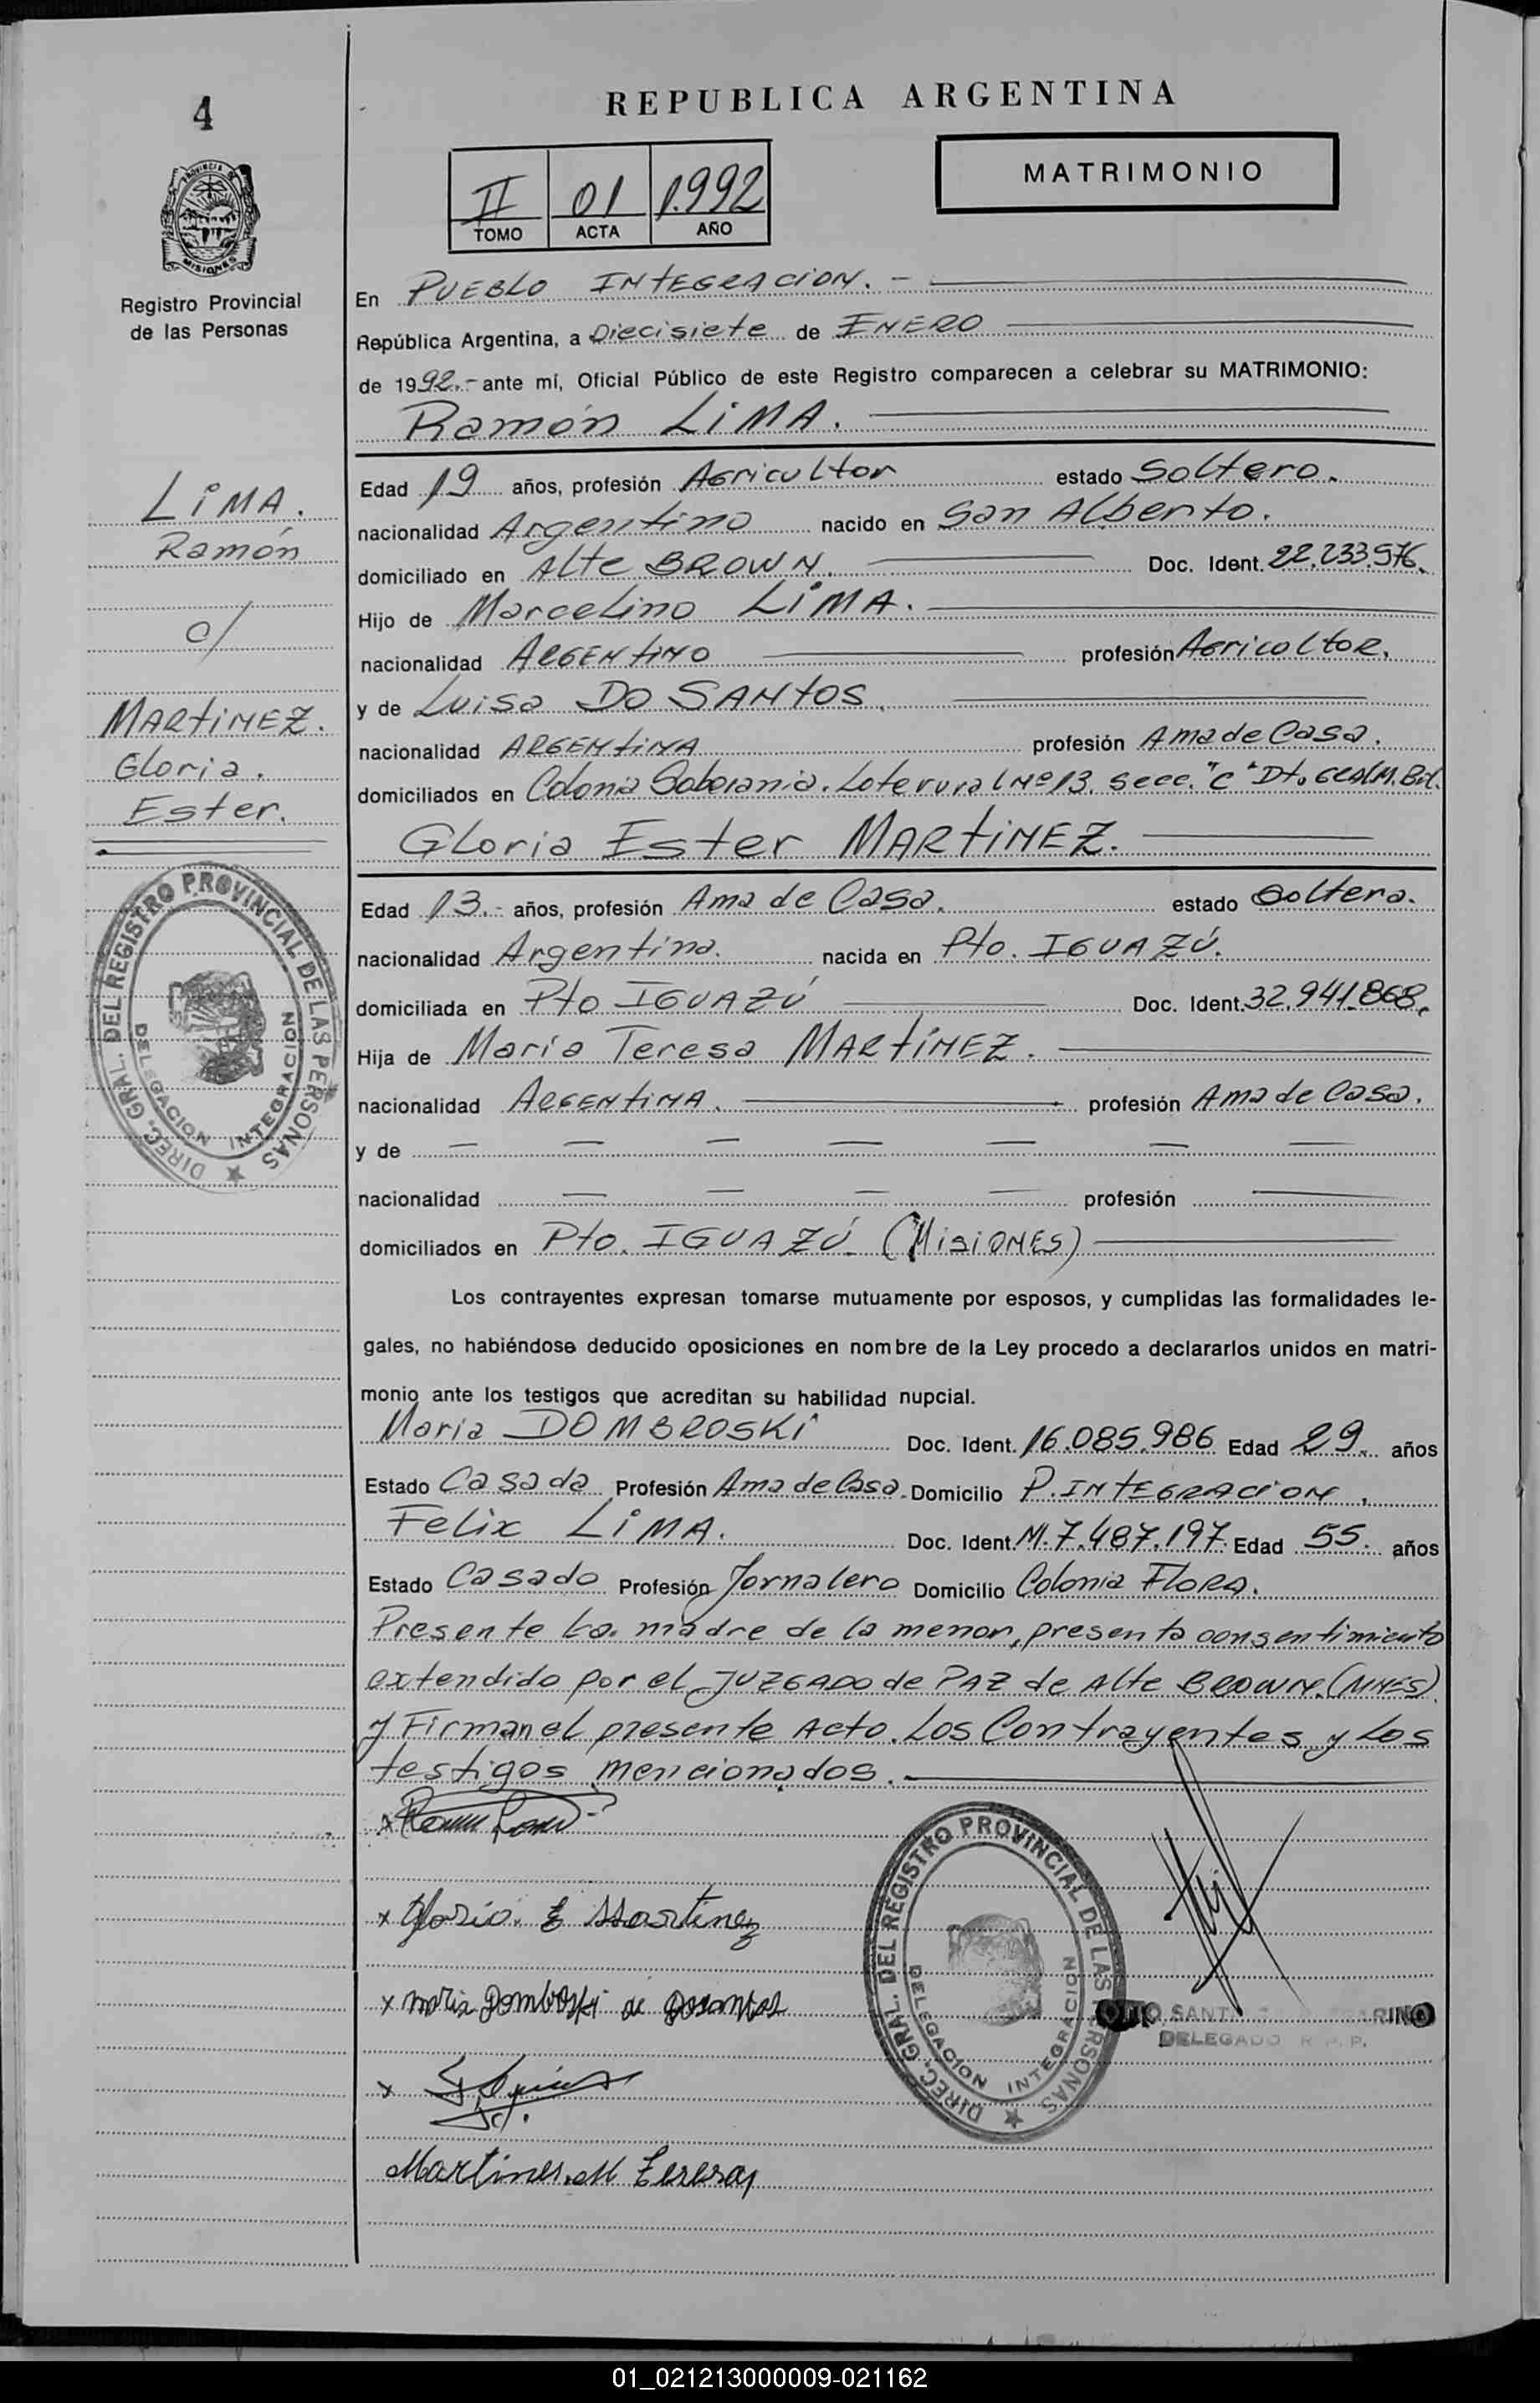 4
REPUBLICA ARGENTINA
MATRIMONIO
II 01 1.992
TOMO ACTA AÑO
PROVINCIA DE
MISIONES
Registro Provincial
de las Personas
En PUEBLO INTEGRACION. -
República Argentina, a Diecisiete de ENERO
de 1992.- ante mí, Oficial Público de este Registro comparecen a celebrar su MATRIMONIO:
Ramón LIMA.
LIMA.
Ramón
c/
MARTINEZ.
Gloria.
Ester.
Edad 19 años, profesión Agricultor estado Soltero.
nacionalidad Argentino nacido en San Alberto.
domiciliado en Alte BROWN. Doc. Ident. 22.233.576.
Hijo de Marcelino LIMA.
nacionalidad ARGENTINO profesión AGricoltoR.
y de Luisa DO SANTOS.
nacionalidad ARGENTINA profesión Ama de Casa.
domiciliados en Colonia Soberania. Lote rural Nº 13. Secc. "C" Dto. GRAL M. Bel.
Gloria Ester MARTINEZ.
Edad 13.- años, profesión Ama de Casa. estado Soltera.
nacionalidad Argentina. nacida en Pto. IGUAZÚ.
domiciliada en Pto IGUAZÚ Doc. Ident. 32.941.868.
Hija de María Teresa MARTÍNEZ.
nacionalidad ARGENTINA. profesión Ama de Casa.
y de — — — — — — —
nacionalidad — — — — profesión —
domiciliados en Pto. IGUAZÚ. (MISIONES)
Los contrayentes expresan tomarse mutuamente por esposos, y cumplidas las formalidades le-
gales, no habiéndose deducido oposiciones en nombre de la Ley procedo a declararlos unidos en matri-
monio ante los testigos que acreditan su habilidad nupcial.
Maria DOMBROSKI Doc. Ident. 16.085.986 Edad 29. años
Estado Casada Profesión Ama de Casa. Domicilio P. INTEGRACION.
Felix LIMA. Doc. Ident. M. 7.487.197. Edad 55. años
Estado Casado Profesión Jornalero Domicilio Colonia FLORA.
Presente La madre de la menor, presenta consentimiento
extendido por el JUZGADO de PAZ de Alte BROWN. (MNES)
y Firman el presente Acto. Los Contrayentes y Los
testigos mencionados.
DIREC. GRAL. DEL REGISTRO PROVINCIAL DE LAS PERSONAS
DELEGACION INTEGRACION
x Gloria E Martinez
x maria Dombroski de Dosantos
x
Martines M Teresa
DIREC. GRAL. DEL REGISTRO PROVINCIAL DE LAS PERSONAS
DELEGACION INTEGRACION
DELEGADO R. P. P.
01_021213000009-021162